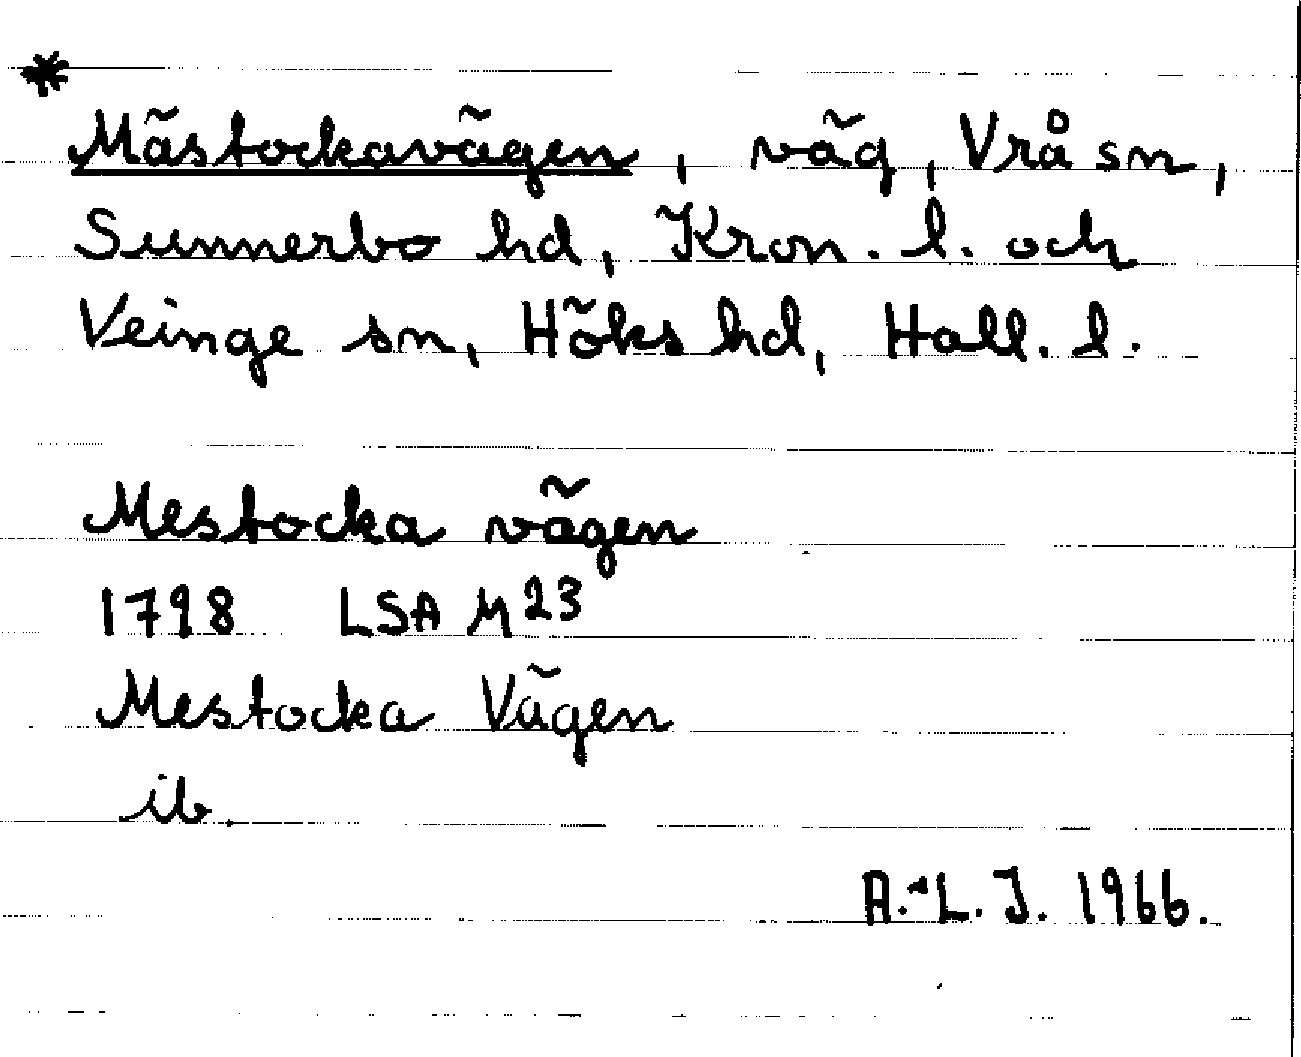 *
Mästockavägen, väg, Vrå sn,
Sunnerbo hd, Kron. l. och
Veinge sn, Höks hd, Hall. l.
Mestocka vägen
1798 LSA M23
Mestocka Vägen
ib.
A.-L. J. 1966.